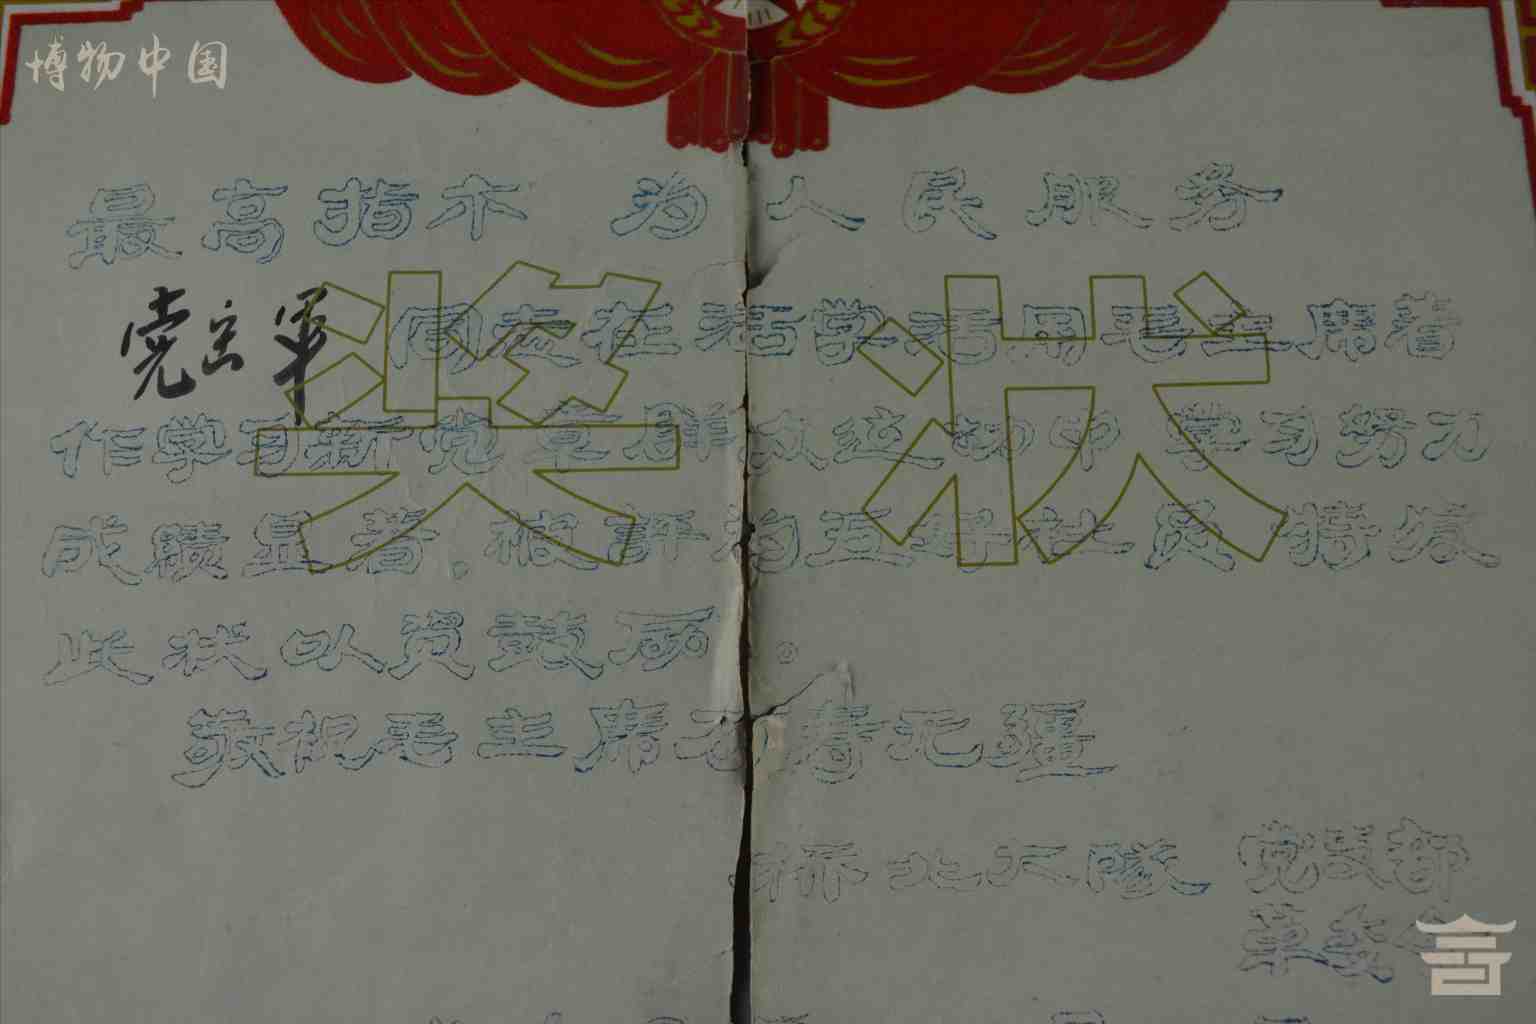 博物中国
最高指示 为人民服务
奖状
党立军同志在活学活用毛主席著
作学习新党章群众运动中学习努力
成绩显著。被評为五好社员特发
此状以资鼓励。
敬祝毛主席万寿无疆
桥北大隊 党支部
革委会